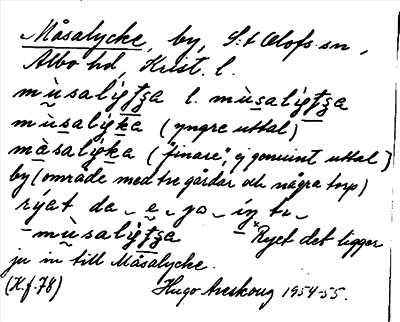 Måsalycke, by, S:t Olofs sn,
Albo hd, Krist. l.
mùsalýţʒa l. mùsalýţʒa
mùsalýka (yngre uttal)
måsalýka ("finare", ej genuint uttal)
by (område med tre gårdar och några torp)
rýat da e jo in te
mùsalýţʒa "Ryet det ligger
ju in till Måsalycke.
(K.f.78) Hugo Areskoug 1954-55.